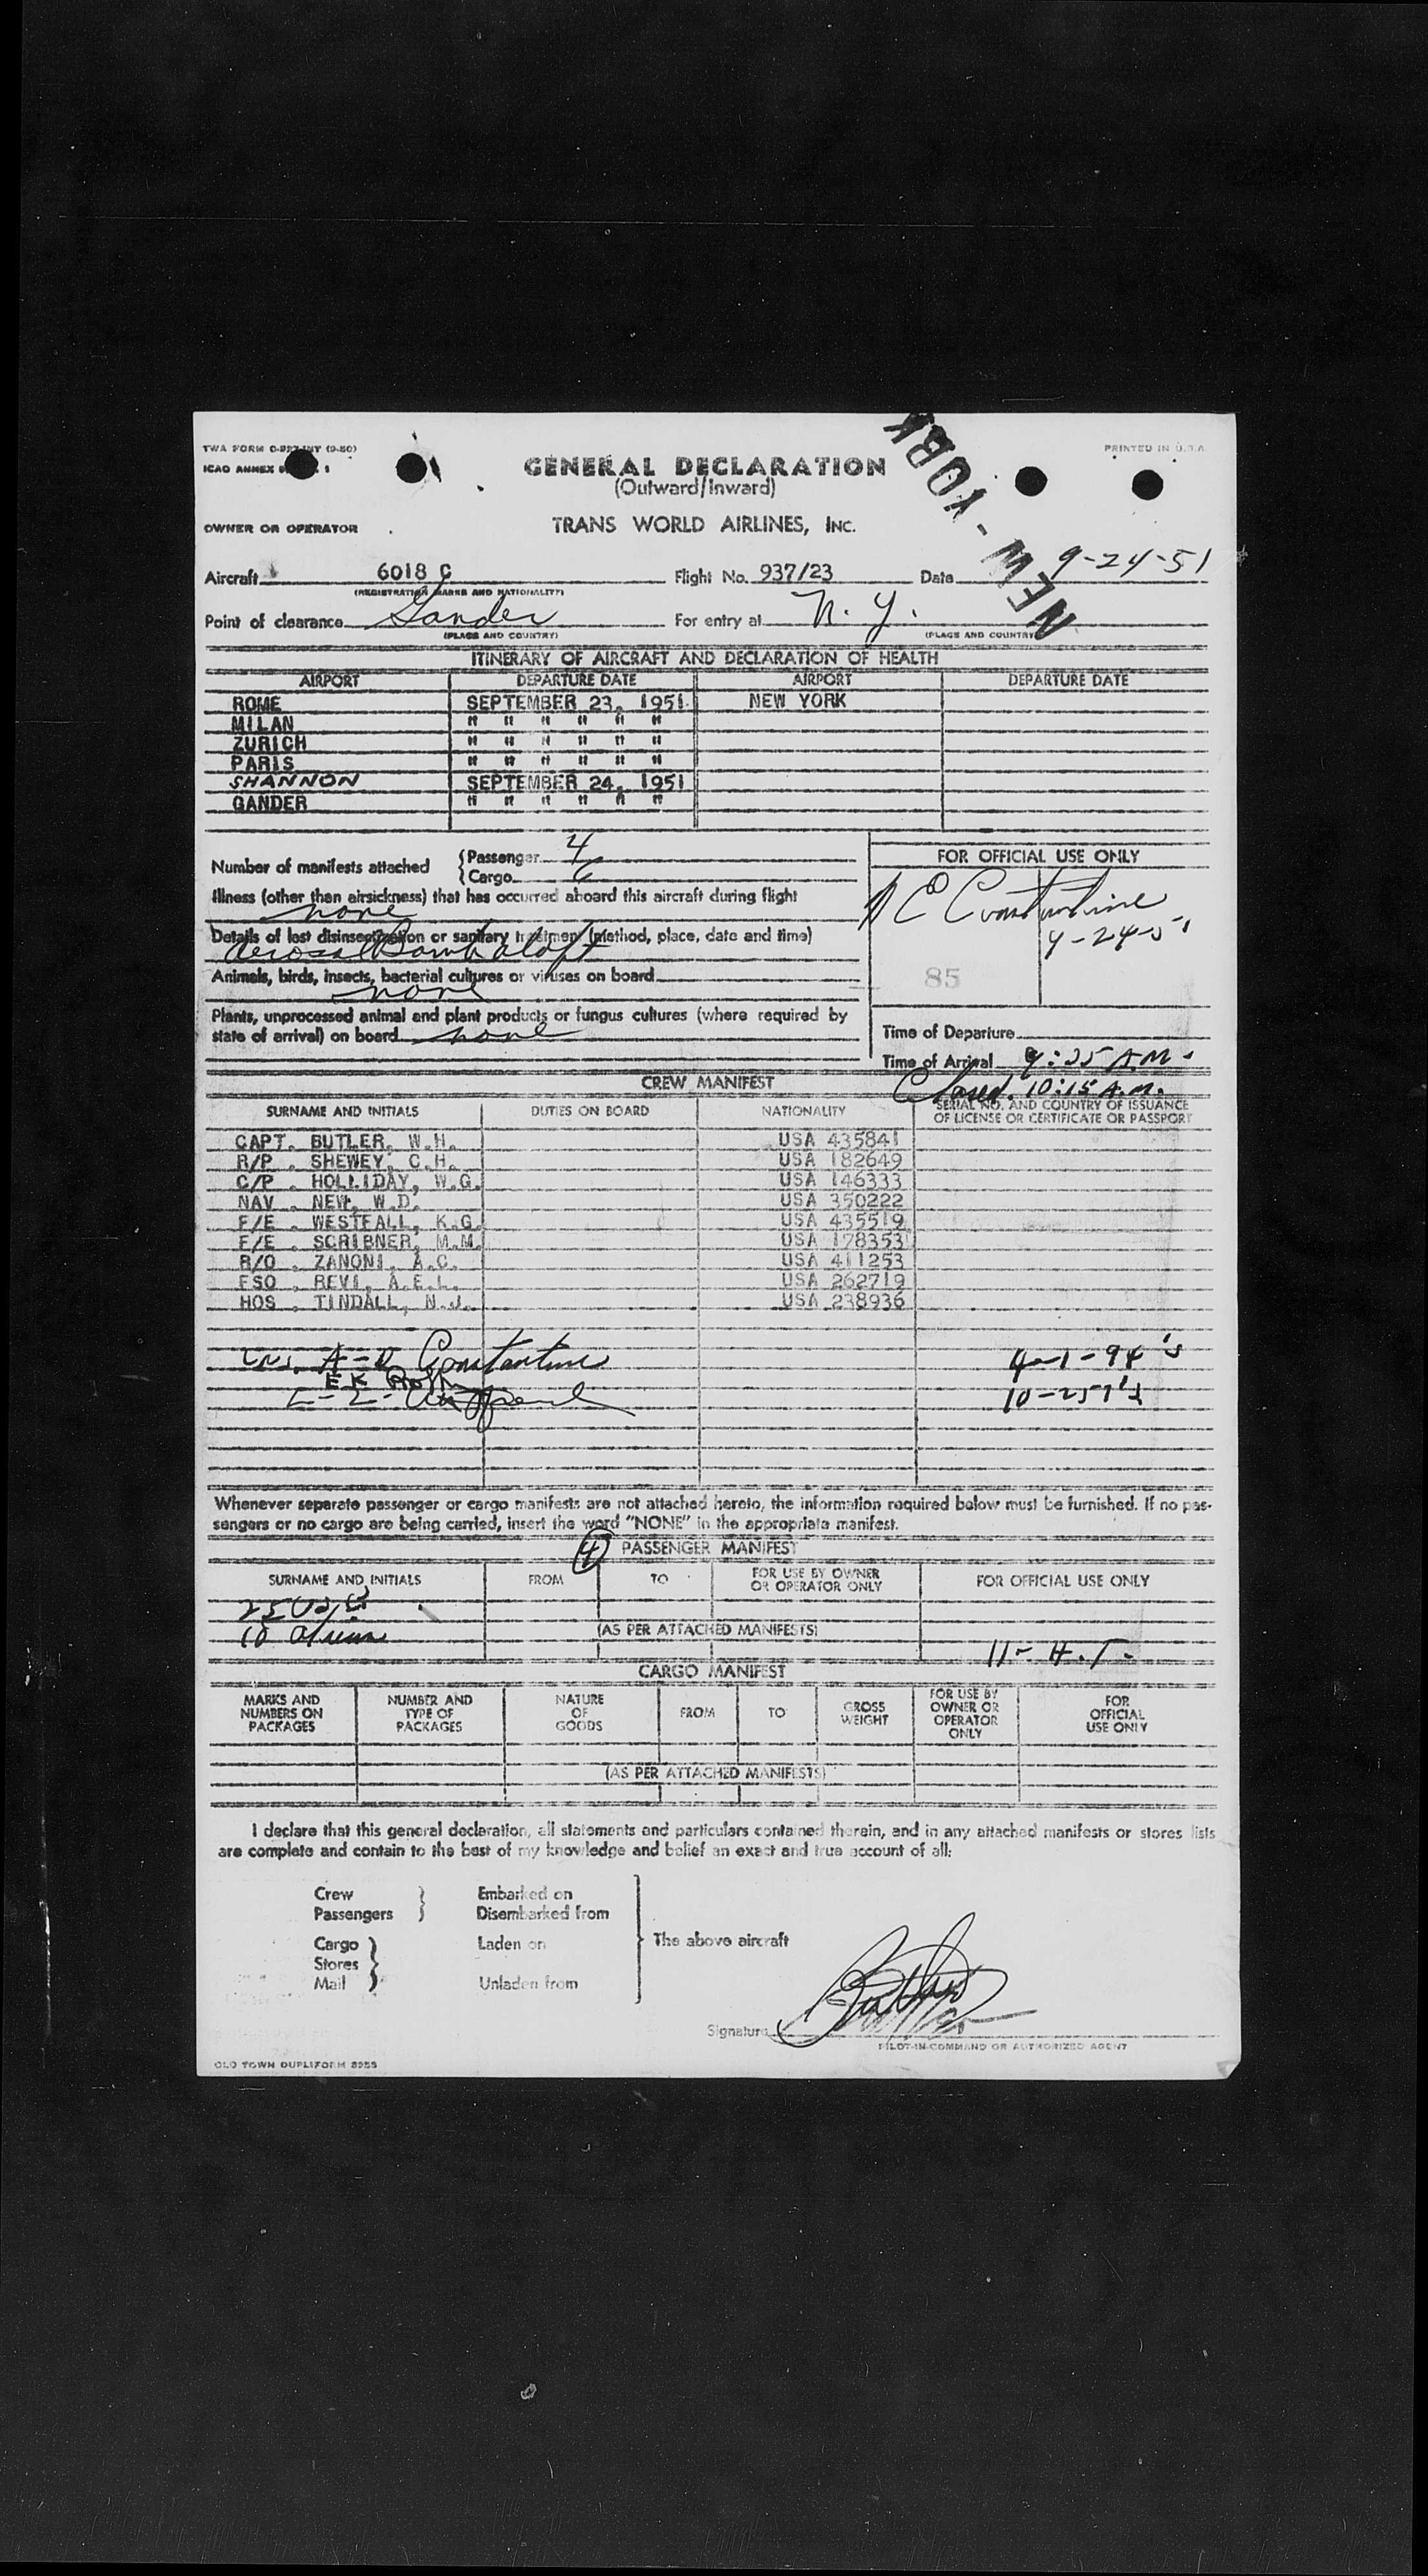 TWA FORM
PRINTED IN U.S.A.
ICAO ANNEX 1
GENERAL DECLARATION
(Outward/Inward)
NEW-YORK
OWNER OR OPERATOR
TRANS WORLD AIRLINES, INC.
Aircraft 6018 C Flight No. 937/23 Date 9-24-51
(REGISTRATION MARKS AND NATIONALITY)
Point of clearance Gander For entry at N. Y.
(PLACE AND COUNTRY) (PLACE AND COUNTRY)
ITINERARY OF AIRCRAFT AND DECLARATION OF HEALTH
AIRPORT DEPARTURE DATE AIRPORT DEPARTURE DATE
ROME SEPTEMBER 23, 1951 NEW YORK
MILAN " " " " " "
ZURICH " " " " " "
PARIS " " " " " "
SHANNON SEPTEMBER 24, 1951
GANDER " " " " " "
Number of manifests attached {Passenger 4
{Cargo 6
FOR OFFICIAL USE ONLY
Illness (other than airsickness) that has occurred aboard this aircraft during flight
none
E Constantine
Details of last disinsectization or sanitary treatment (method, place, date and time)
Aerosol Bomb aloft
9-24-51
Animals, birds, insects, bacterial cultures or viruses on board
none
85
Plants, unprocessed animal and plant products or fungus cultures (where required by
state of arrival) on board none
Time of Departure
Time of Arrival 9:25 AM.
Closed. 10:15 A.M.
CREW MANIFEST
SURNAME AND INITIALS DUTIES ON BOARD NATIONALITY SERIAL NO. AND COUNTRY OF ISSUANCE
OF LICENSE OR CERTIFICATE OR PASSPORT
CAPT. BUTLER, W.H. USA 435841
R/P . SHEWEY, C.H. USA 182649
C/P . HOLLIDAY, W.G. USA 146333
NAV . NEW, W.D. USA 350222
F/E . WESTFALL, K.G. USA 435519
F/E . SCRIBNER, M.M. USA 178353
R/O . ZANONI, A.C. USA 411253
FSO . REVI, A.E.L. USA 262719
HOS . TINDALL, N.J. USA 238936
Constantine
E K
Whenever separate passenger or cargo manifests are not attached hereto, the information required below must be furnished. If no pas-
sengers or no cargo are being carried, insert the word "NONE" in the appropriate manifest.
4 PASSENGER MANIFEST
SURNAME AND INITIALS FROM TO FOR USE BY OWNER
OR OPERATOR ONLY FOR OFFICIAL USE ONLY
10 aliens
(AS PER ATTACHED MANIFESTS)
11- H.T.
CARGO MANIFEST
MARKS AND
NUMBERS ON
PACKAGES
NUMBER AND
TYPE OF
PACKAGES
NATURE
OF
GOODS
FROM
TO
GROSS
WEIGHT
FOR USE BY
OWNER OR
OPERATOR
ONLY
FOR
OFFICIAL
USE ONLY
(AS PER ATTACHED MANIFESTS)
I declare that this general declaration, all statements and particulars contained therein, and in any attached manifests or stores lists
are complete and contain to the best of my knowledge and belief an exact and true account of all:
Crew } Embarked on
Passengers } Disembarked from
Cargo } Laden on The above aircraft
Stores
Mail } Unladen from
Signature Butler
PILOT-IN-COMMAND OR AUTHORIZED AGENT
OLD TOWN DUPLIFORM